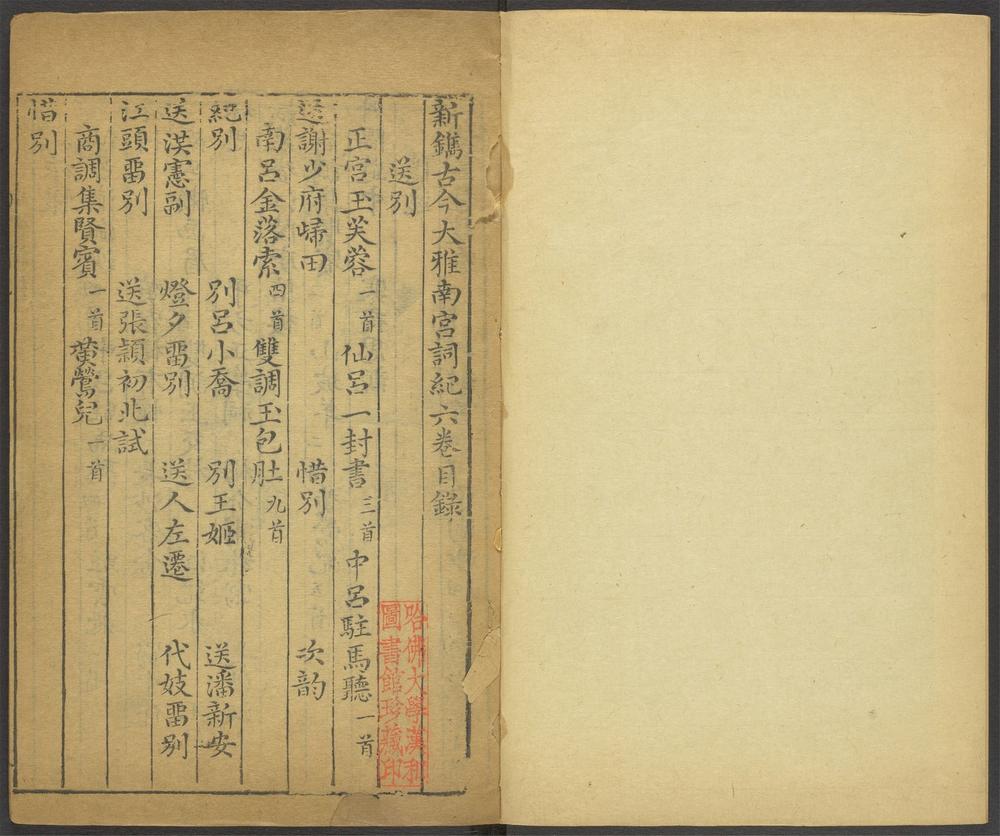 新鐫古今大雅南宮詞紀六卷目錄
送別
正宮玉芙蓉一首 仙呂一封書三首 中呂駐馬聽一首
送謝少府歸田 惜別 次韵
南呂金落索四首 雙調玉包肚九首
紀別 別呂小喬 別王姬 送潘新安
送洪憲副 燈夕畱別 送人左遷 代妓畱別
江頭畱別 送張頴初北試
商調集賢賓一首 黄鶯兒一首
惜別
哈佛大學漢和
圖書館珍藏印